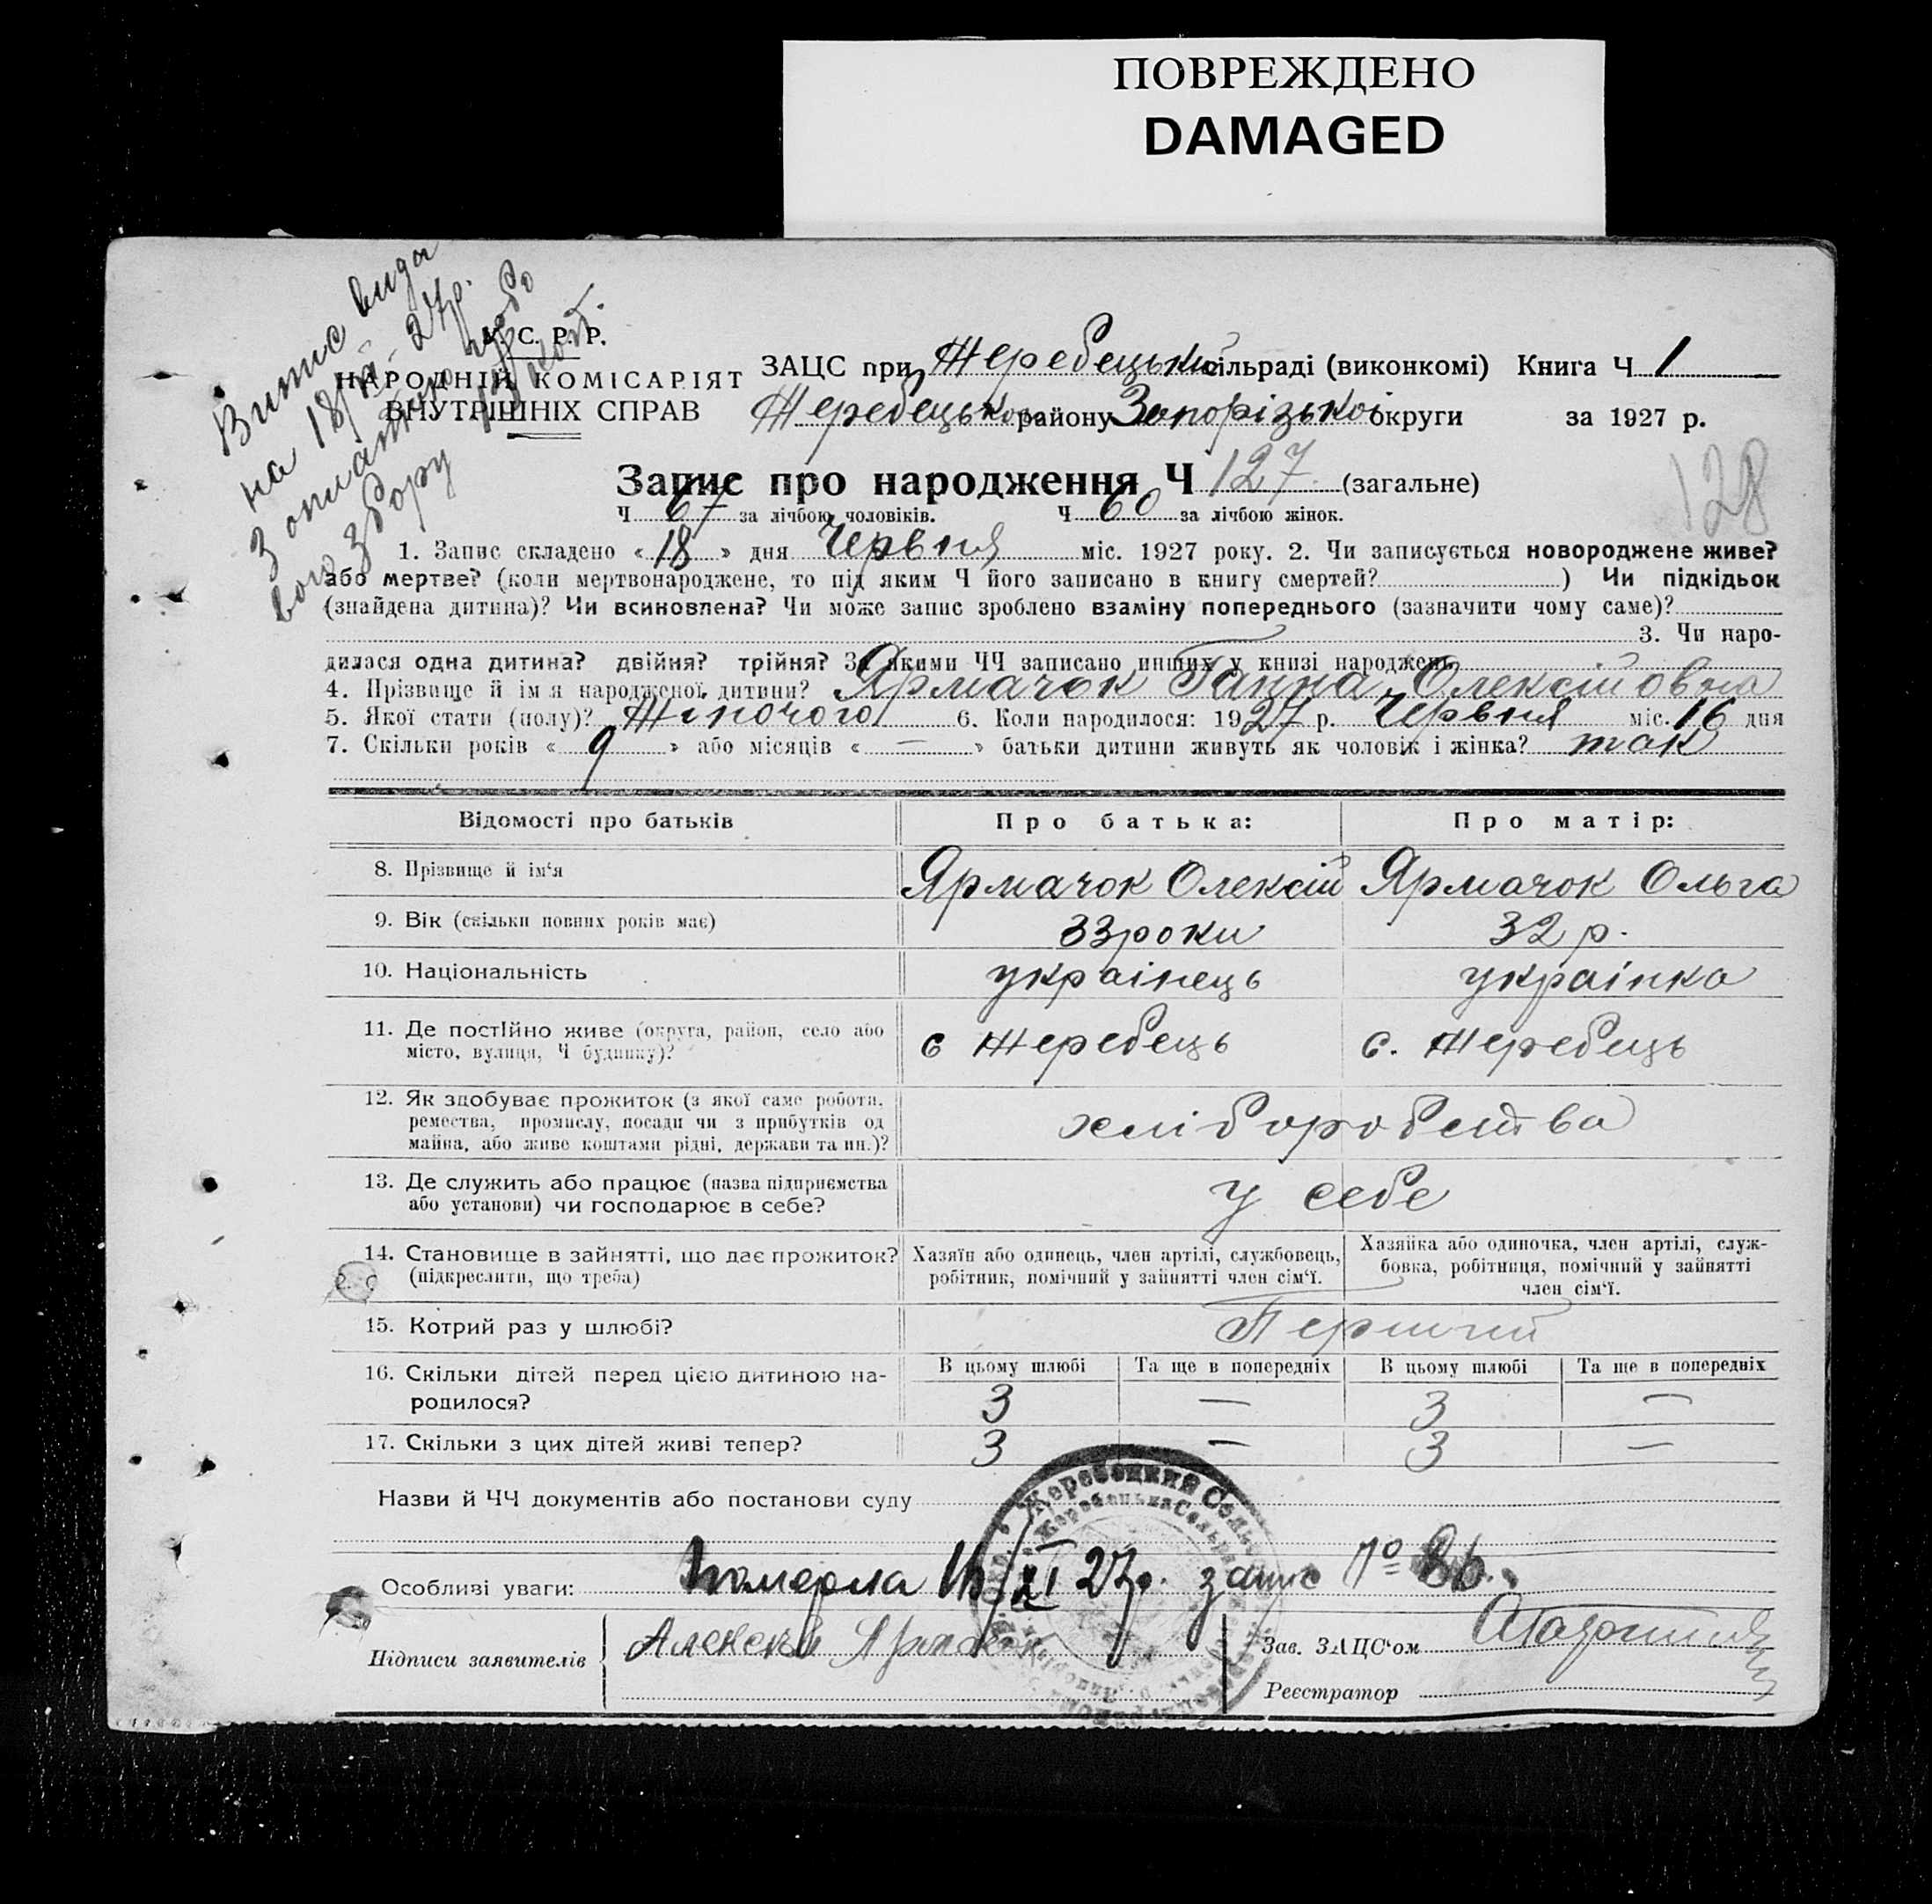 ПОВРЕЖДЕНО
DAMAGED
Випис вида
на 18/VI- 27р.
З оплатою гербо
вого збору коп.
У. С. Р. Р.
НАРОДНІЙ КОМІСАРІЯТ
ВНУТРІШНІХ СПРАВ
ЗАЦС при Жеребецькій сільраді (виконкомі) Книга Ч 1
Жеребецького району Запорізької округи за 1927 р.
Запис про народження Ч 127 (загальне)
128
Ч 67 за лічбою чоловіків. Ч 60 за лічбою жінок.
1. Запис складено « 18 » дня Червня міс. 1927 року. 2. Чи записується новороджене живе?
або мертве? (коли мертвонароджене, то під яким Ч його записано в книгу смертей? ) Чи підкідьок
(знайдена дитина)? Чи всиновлена? Чи може запис зроблено взаміну попереднього (зазначити чому саме)?
3. Чи наро-
дилася одна дитина? двійня? трійня? За якими ЧЧ записано инших у книзі народжень
4. Прізвище й ім'я народженої дитини? Ярмачок Ганна Олексійовна
5. Якої стати (полу)? Жіночого 6. Коли народилося: 1927 р. Червня міс. 16 дня
7. Скільки років « 9 » або місяців « — » батьки дитини живуть як чоловік і жінка? так
Відомості про батьків Про батька: Про матір:
8. Прізвище й ім'я Ярмачок Олексій Ярмачок Ольга
9. Вік (скільки повних років має) 33 роки 32 р.
10. Національність українець українка
11. Де постійно живе (округа, район, село або
місто, вулиця, Ч будинку)? с Жеребець с. Жеребець
12. Як здобуває прожиток (з якої саме роботи,
ремества, промислу, посади чи з прибутків од
майна, або живе коштами рідні, держави та ин.)? хліборобства
13. Де служить або працює (назва підприємства
або установи) чи господарює в себе? у себе
14. Становище в зайнятті, що дає прожиток?
(підкреслити, що треба)
Хазяїн або одинець, член артілі, службовець,
робітник, помічний у зайнятті член сім'ї.
Хазяйка або одиночка, член артілі, служ-
бовка, робітниця, помічний у зайнятті
член сім'ї.
15. Котрий раз у шлюбі? Перший
В цьому шлюбі Та ще в попередніх В цьому шлюбі Та ще в попередніх
16. Скільки дітей перед цією дитиною на-
родилося? 3 — 3 —
17. Скільки з цих дітей живі тепер? 3 — 3 —
Назви й ЧЧ документів або постанови суду
Особливі уваги: Померла 16/XI 27р. запис № 86.
Підписи заявителів Алексей Ярмачок
Зав. ЗАЦС'ом
Реєстратор